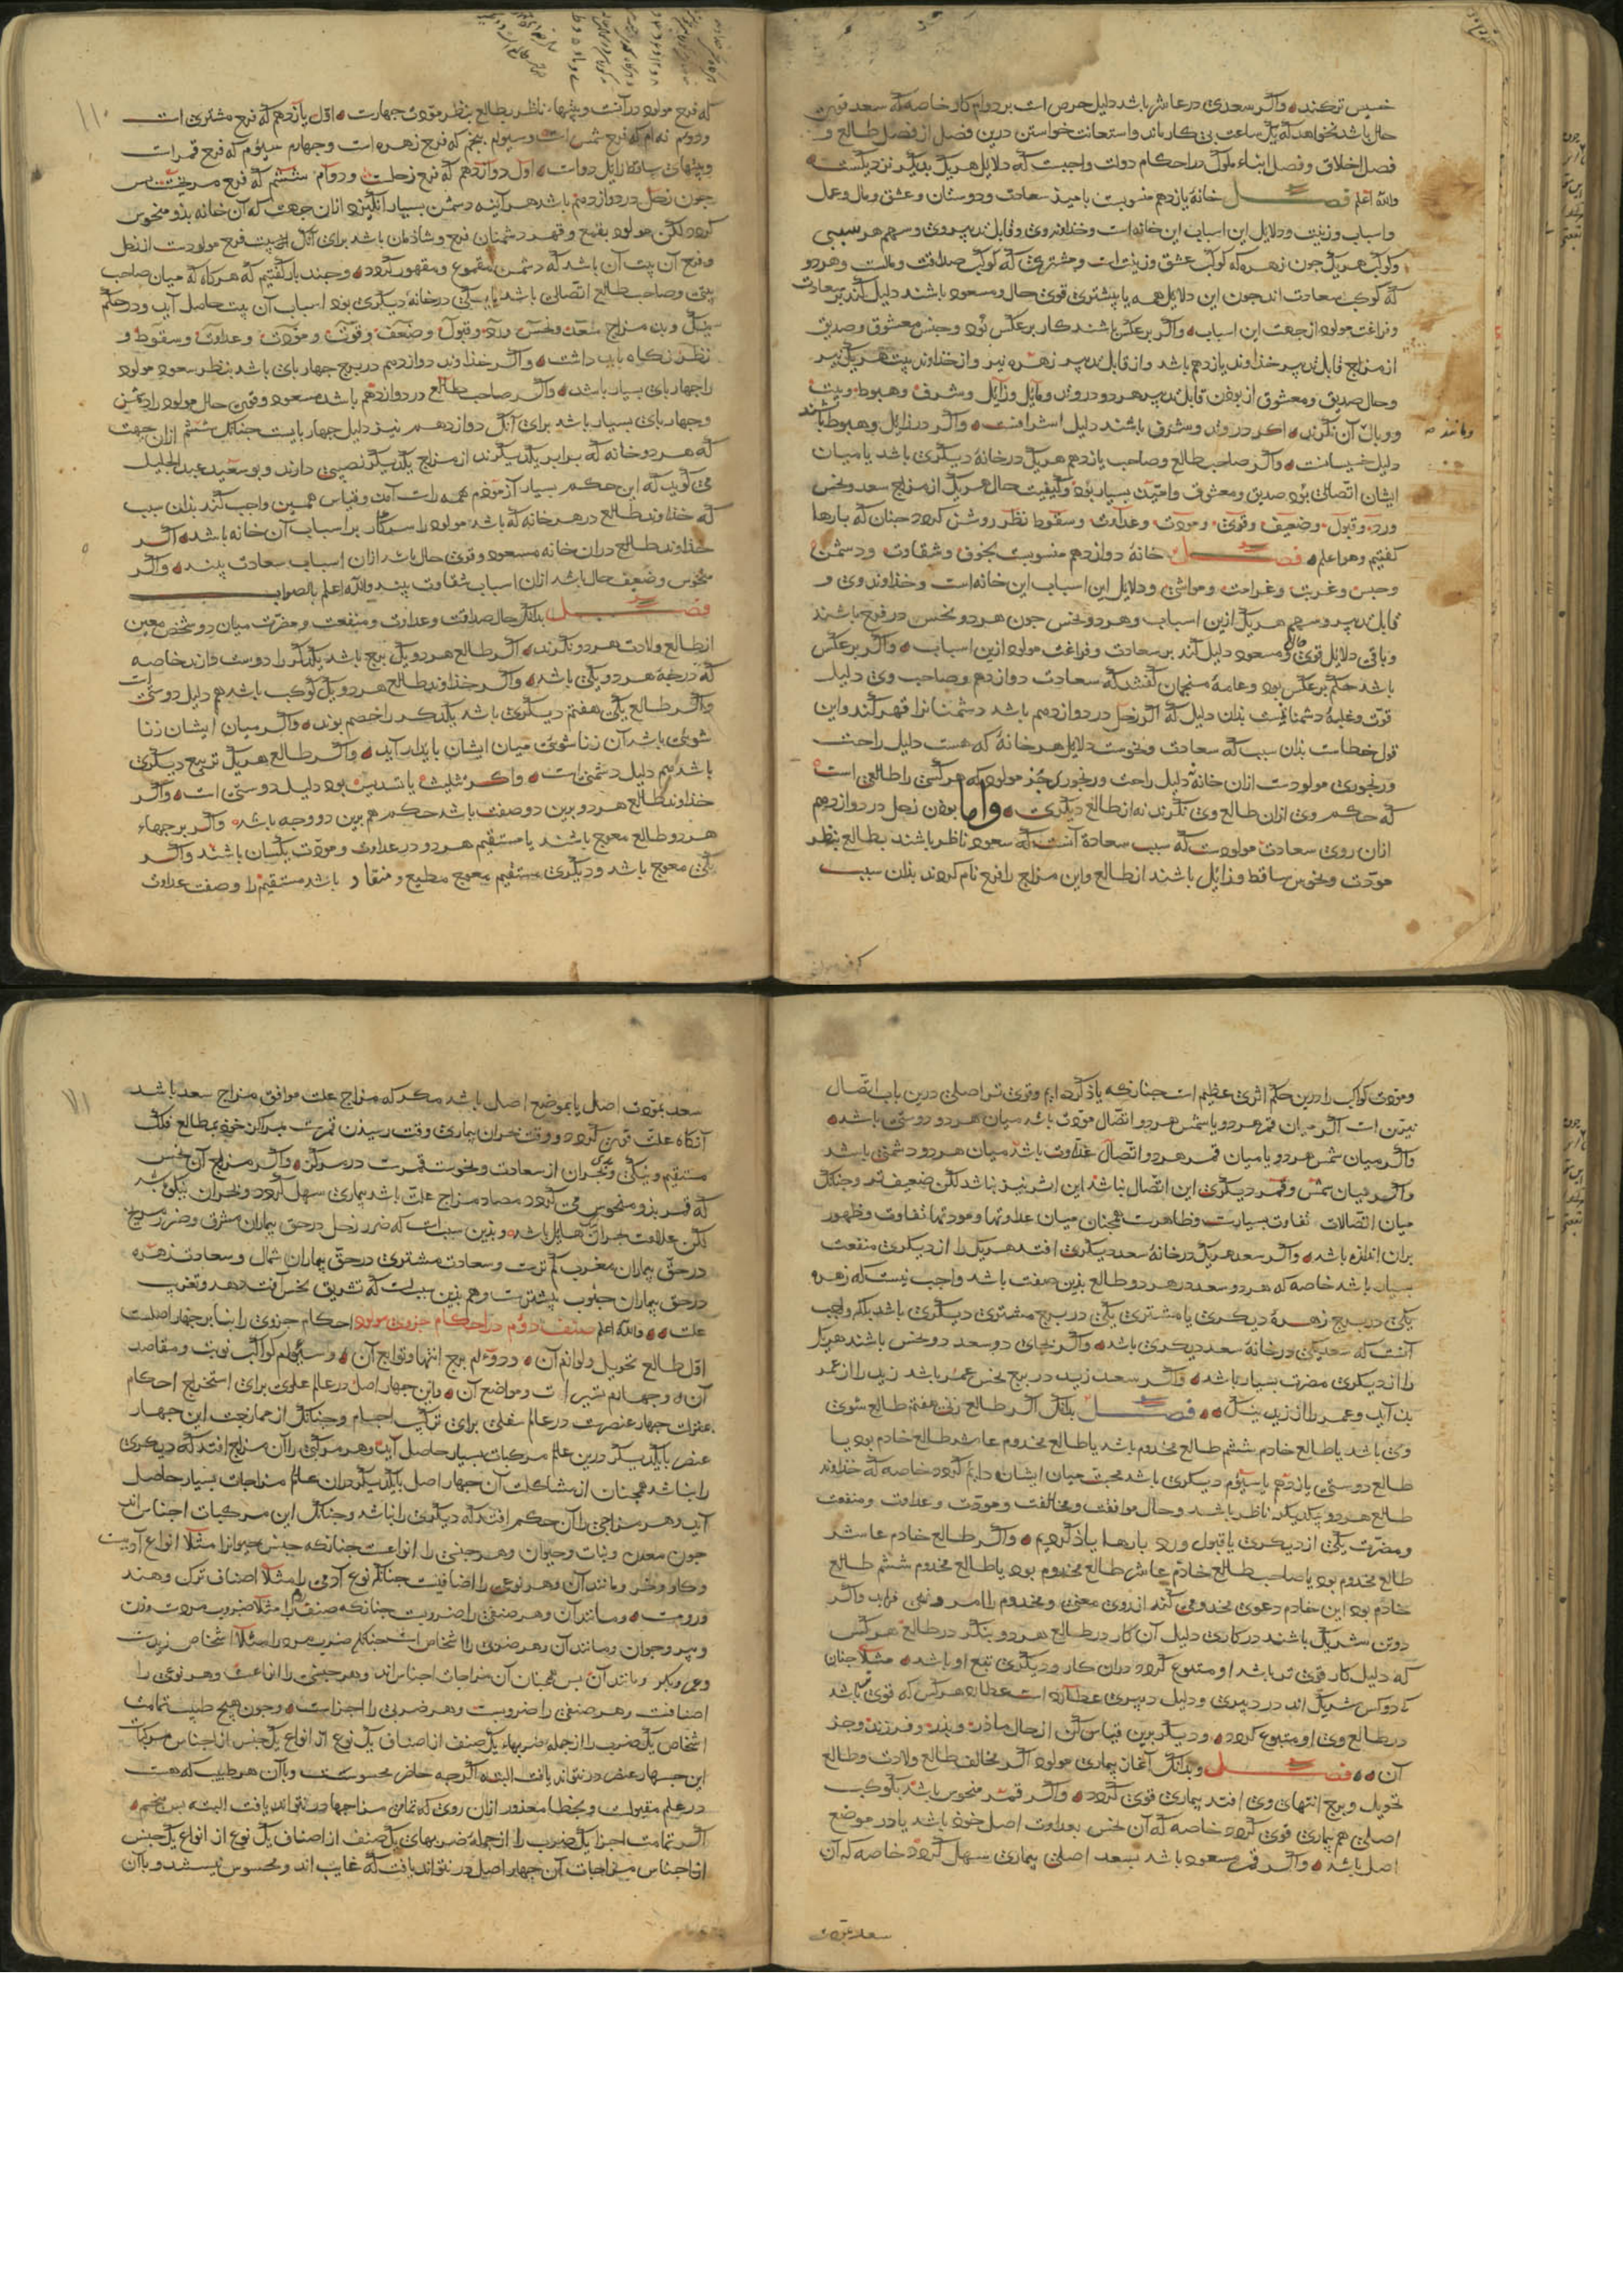 خسیس ترکند واکر سعدی در عاشر باشد دلیل حرص است بر دوام کار خاصه که سعد قوی
حال باشد نخواهد که یک ساعت بی کار ماند واستعانت خواستن درین فصل از فصل طالع و
فصل اخلاق وفصل ابناء ملوک در احکام دولت واجبست که دلایل هر یک بدیکر نزدیکست
والله اعلم فصل خانهٔ یازدهم منسوبست بامید سعادت ودوستان وعشق ومال وعمل
واسباب وزینت ودلایل این اسباب این خانه است وخداوند وی وقابل تدبیر وی وسهم هر سببی
وکوکب هر یک چون زهره که کوکب عشق وزینت است ومشتری که کوکب صداقت ومالست وهر دو
که کوکب سعادت اند جون این دلایل همه یا بیشتری قوی حال ومسعود باشند دلیل کند بر سعادت
وفراغت مولود از جهت این اسباب واکر بر عکس باشند کار بر عکس بود وجنس معشوق وصدیق
از مزاج قابل تدبیر خداوند یازدهم باشد واز قابل تدبیر زهره نیز واز خداوند بیت هر یک نیز
وحال صدیق ومعشوق از بودن قابل تدبیر هر دو در وتد ومایل وزایل وشرف وهبوط وبیت
ووبال آن نکرند اکر در وتد وشرف باشند دلیل اشرافست واکر در زایل وهبوط باشند
دلیل خسیسانست واکر صاحب طالع وصاحب یازدهم هر یک در خانهٔ دیکری باشد یا میان
ایشان اتصالی بود صدیق ومعشوق وامید بسیار بود وکیفیت حال هر یک از مزاج سعد ونحس
ورد وقبول وضعیف وقوی ومودت وعداوت وسقوط نظر روشن کردد جنان که بارها
کفتیم وهو اعلم فصل خانهٔ دوازدهم منسوبست بخوف وشقاوت ودشمن
وحبس وغربت وغرامت ومواشی ودلایل این اسباب این خانه است وخداوند وی و
قابل تدبیر وسهم هر یک ازین اسباب وهر دو نحس جون هر دو نحس در فرح باشند
وباقی دلایل قوی حال ومسعود دلیل کند بر سعادت وفراغت مولود ازین اسباب واکر بر عکس
باشد حکم بر عکس بود وعامهٔ منجمان کفتند که سعادت دوازدهم وصاحب وی دلیل
قوت وغلبهٔ دشمنانست بدان دلیل که اکر زحل در دوازدهم باشد دشمنانرا قهر کند واین
قول خطاست بدان سبب که سعادت ونحوست دلایل هر خانهٔ که هست دلیل راحت
ورنجوری مولودست ازان خانه دلیل راحت ورنجوری جز مولود که هر کسی را طالعی است
که حکم وی ازان طالع وی نکرند نه از طالع دیکری واما بودن زحل در دوازدهم
ازان روی سعادت مولودست که سبب سعادة آنست که سعود ناظر باشند بطالع بنظر
مودت ونحوس ساقط وزایل باشند از طالع واین مزاج را فرح نام کردند بدان سبب
وبا نند صح
که فرح مولود درآنست وبیتهاء ناظر بطالع بنظر مودت جهارست اول یازدهم که فرح مشتری است
ودوم نهم که فرح شمس است وسیوم پنجم که فرح زهره است وجهارم سیوم که فرح قمر است
وبیتهای ساقط زایل دواست اول دوازدهم که فرح زحلست ودوم ششم که فرح مریخست پس
جون زحل در دوازدهم باشد هر آینه دشمن بسیار انکیزد ازان جهت که آن خانه بدو منحوس
کردد لکن مولود بقمع وقهر دشمنان فرح وشادمان باشد برای آنک این بیت فرح مولودست از زحل
وفرح آن بیت آن باشد که دشمن مقموع ومقهور کردد وجند بار کفتیم که هر کاه که میان صاحب
بیتی وصاحب طالع اتصالی باشد یا یکی در خانهٔ دیکری بود اسباب آن بیت حاصل آید ودر حکم
نیک وبد مزاج سعد ونحس ورد وقبول وضعف وقوت ومودت وعداوت وسقوط و
نظر نکاه باید داشت واکر خداوند دوازدهم در برج جهار پای باشد بنظر سعود مولود
را جهار پای بسیار باشد واکر صاحب طالع در دوازدهم باشد مسعود وقوی حال مولود را دشمن
وجهار پای بسیار باشد برای آنک دوازدهم نیز دلیل جهار پایست جنانک ششم ازان جهت
که هر دو خانه که برابر یکدیکرند از مزاج یکدیکر نصیبی دارند وبو سعید عبد الجلیل
می کوید که این حکم بسیار آزمودم همه راست آمد وقیاس همین واجب کند بدان سبب
که خداوند طالع در هر خانه که باشد مولود را سر وکار بر اسباب آن خانه باشد اکر
خداوند طالع دران خانه مسعود وقوی حال باشد ازان اسباب سعادت بیند واکر
منحوس وضعیف حال باشد ازان اسباب شقاوت بیند والله اعلم بالصواب
فصل بدانک حال صداقت وعداوت ومنفعت ومضرت میان دو شخص معین
از طالع ولادت هر دو نکرند اکر طالع هر دو یک برج باشد یکدیکر را دوست دارند خاصه
که درجهٔ هر دو یکی باشد واکر خداوند طالع هر دو یک کوکب باشد هم دلیل دوستی است
واکر طالع یکی هفتم دیکری باشد یکدیکر را خصم بوند واکر میان ایشان زنا
شوئی باشد آن زنا شوئی میان ایشان پایدار آید واکر طالع هر یک تربیع دیکری
باشد هم دلیل دشمنی است واکر تثلیث یا تسدیس بود دلیل دوستی است واکر
خداوند طالع هر دو برین دو صفت باشد حکم هم برین دو وجه باشد واکر برجهاء
هر دو طالع معوج باشند یا مستقیم هر دو در عداوت ومودت یکسان باشند واکر
یکی معوج باشد ودیکری مستقیم معوج مطیع ومنقاد باشد مستقیم را وصفت عداوت
ومودت کواکب را درین حکم اثری عظیم است جنانکه یاذ کرده ایم وقوی تر اصلی درین باب اتصال
نیرین است اکر میان قمر هر دو یا شمس هر دو اتصال مودت باشد میان هر دو دوستی باشد
واکر میان شمس هر دو یا میان قمر هر دو اتصال عداوت باشد میان هر دو دشمنی باشد
واکر میان شمس وقمر دیکری این اتصال باشد این اثر نیز باشد لکن ضعیف تر وجنانک
میان اتصالات تفاوت بسیارست وظاهرست همجنان میان عداوتها ومودتها تفاوت وظهور
بران اندازه باشد واکر سعد هر یک در خانهٔ سعد دیکری افتد هر یک را از دیکری منفعت
بسیار باشد خاصه که هر دو سعد در هر دو طالع بدین صفت باشد واجب نیست که زهره
یکی در برج زهرهٔ دیکری یا مشتری یکی در برج مشتری دیکری باشد بلکه واجب
آنست که سعد یکی در خانهٔ سعد دیکری باشد واکر بجای دو سعد دو نحس باشند هر یک
را از دیکری مضرت بسیار باشد واکر سعد زید در برج نحس عمر باشد زید را از عمر
بد آید وعمر را از زید نیک فصل بدانک اکر طالع زن هفتم طالع شوی
وی باشد یا طالع خادم ششم طالع مخدوم باشد یا طالع مخدوم عاشر طالع خادم بود یا
طالع دوستی یازدهم یا سیوم دیکری باشد محبت میان ایشان دایم کردد خاصه که خداوند
طالع هر دو بیکدیکر ناظر باشد وحال موافقت ومخالفت ومودت وعداوت ومنفعت
ومضرت یکی از دیکری یا قبول ورد بارها یاذ کردیم واکر طالع خادم عاشر
طالع مخدوم بود یا صاحب طالع خادم عاشر طالع مخدوم بود یا طالع مخدوم ششم طالع
خادم بود این خادم دعوی مخدومی کند از روی معنی ومخدوم را امر ونهی فرماید واکر
دو تن شریک باشند در کاری دلیل آن کار در طالع هر دو بنکر در طالع هر کس
که دلیل کار قوی تر باشد او متبوع کردد دران کار ودیکری تبع او باشد مثلا جنان
که دو کس شریک اند در دبیری ودلیل دبیری عطارد است عطارد هر کس که قوی تر باشد
در طالع وی او متبوع کردد ودیکر برین قیاس کن از حال ماذر وپذر وفرزند وجز
آن فصل وبدانک آغاز بیماری مولود اکر مخالف طالع ولادت وطالع
تحویل وبرج انتهای وی افتد بیماری قوی کردد واکر قمر منحوس باشد بکوکب
اصلی هم بیماری قوی کردد خاصه که آن نحس بعداوت اصل خوذ باشد یا در موضع
اصل باشد واکر قمر مسعود باشد بسعد اصلی بیماری سهل کردد خاصه که آن
سعد بمودت
سعد بمودت اصل یا بموضع اصل باشد مکر که مزاج علت موافق مزاج سعد باشد
آنکاه علت قوی کردد ووقت بحران بیماری وقت رسیدن قمرست بمراکز خوذ بمطالع فلک
مستقیم ونیکی وبدی بحران از سعادت ونحوست قمرست در مرکز واکر مزاج آن نحس
که قمر بدو منحوس می کردد مضاد مزاج علت باشد بیماری سهل کردد وبحران نیکو باشد
لکن علامت بحران هایل باشد وبدین سبب است که ضرر زحل در حق بیماران مشرق وضرر مریخ
در حق بیماران مغرب کم ترست وسعادت مشتری در حق بیماران شمال وسعادت زهره
در حق بیماران جنوب بیشترست وهم بدین سبب است که تشریق نحس آفت دهد وتغریب
علت والله اعلم صنف دوم در احکام جزوی مولود احکام جزوی را بنا بر جهار اصلست
اول طالع تحویل ولوازم آن ودوم برج انتها وتوابع آن وسیوم کواکب نوبت ومقاصد
آن وجهارم تسییرات ومواضع آن واین جهار اصل در عالم علوی برای استخراج احکام
بمنزلت جهار عنصرست در عالم سفلی برای ترکیب اجسام وجنانک از ممازجت این جهار
عنصر با یکدیکر درین عالم مرکبات بسیار حاصل آید وهر مرکبی را آن مزاج افتد که دیکری
را نباشد همجنان از مشاکلت آن جهار اصل با یکدیکر دران عالم مزاجات بسیار حاصل
آید وهر مزاجی را آن حکم افتد که دیکری را نباشد وجنانک این مرکبات اجناس اند
جون معدن ونبات وحیوان وهر جنسی را انواعست جنانکه جنس حیوانرا مثلا انواع آدمیست
وکاو وخر ومانند آن وهر نوعی را اصنافیست جنانکه نوع آدمی را مثلا اصناف ترک وهند
ورومست ومانند آن وهر صنفی را ضروبست جنانکه صنف را مثلا ضروب مردست وزن
وپیر وجوان ومانند آن وهر ضربی را اشخاص است جنانکه ضرب مرد را مثلا اشخاص زیدست
وعمرو وبکر ومانند آن پس همجنان آن مزاجات اجناس اند وهر جنسی را انواعست وهر نوعی را
اصنافست وهر صنفی را ضروبست وهر ضربی را اجزاست وجون هیج طبیب تمامت
اشخاص یک ضرب را از جمله ضربهاء یک صنف از اصناف یک نوع از انواع یک جنس از اجناس مرکبات
این جهار عنصر در نتواند یافت البته اکرجه حاضر ومحسوست وبا آن هر طبیب که هست
در علم مقبولست وبخطا معذور ازان روی که تمامی مزاجها در نتواند یافت البته پس منجم
اکر تمامت اجزا یک ضرب را از جمله ضربهای یک صنف از اصناف یک نوع از انواع یک جنس
از اجناس مزاجات آن جهار اصل در نتواند یافت که غایب اند ومحسوس نیستند وبا آن